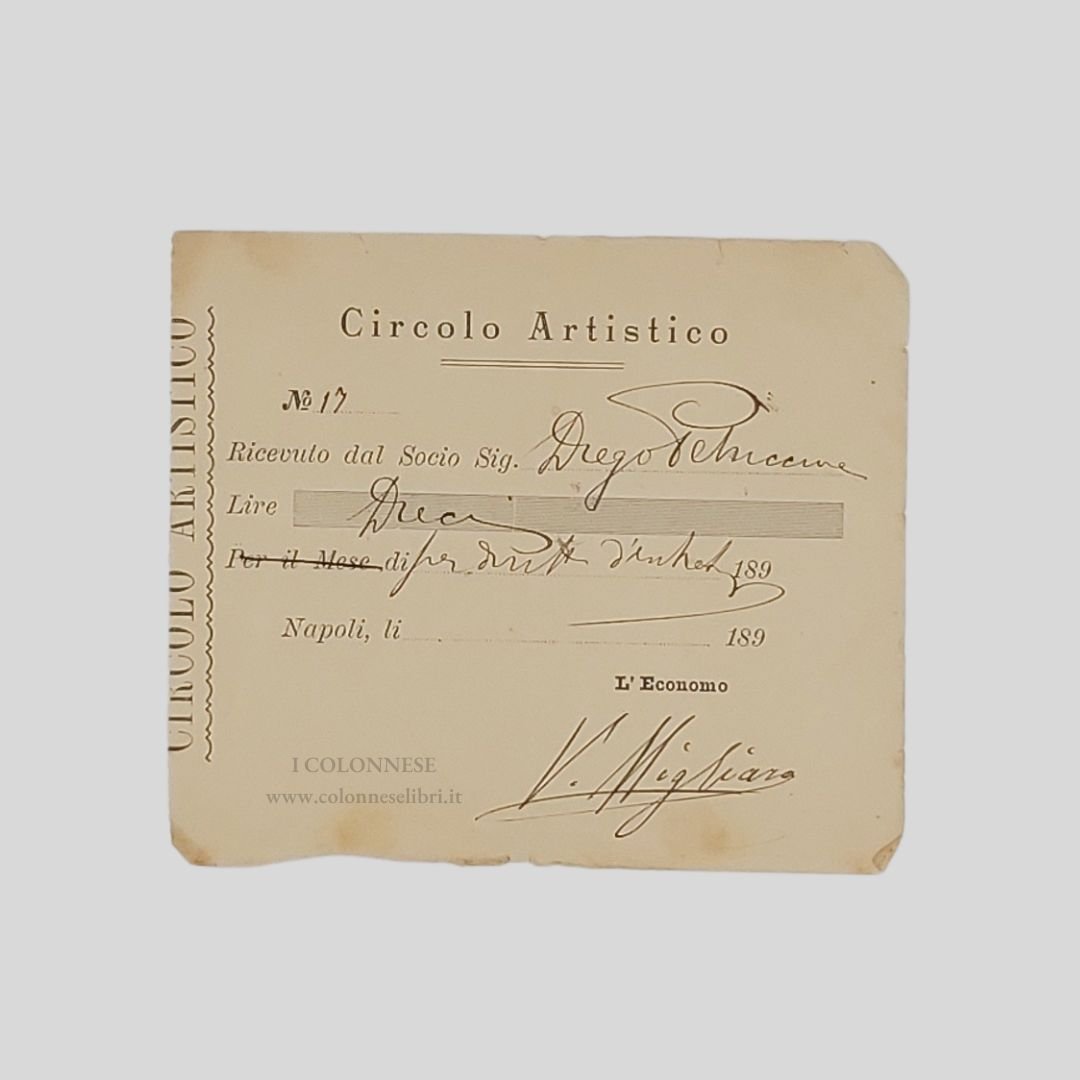 CIRCOLO ARTISTICO
Circolo Artistico
№ 17
Ricevuto dal Socio Sig. Diego Petriccione
Lire Dieci
Per il Mese di per diritto d'entrata 189
Napoli, li 189
L' Economo
V. Migliaro
I COLONNESE
www.colonneselibri.it